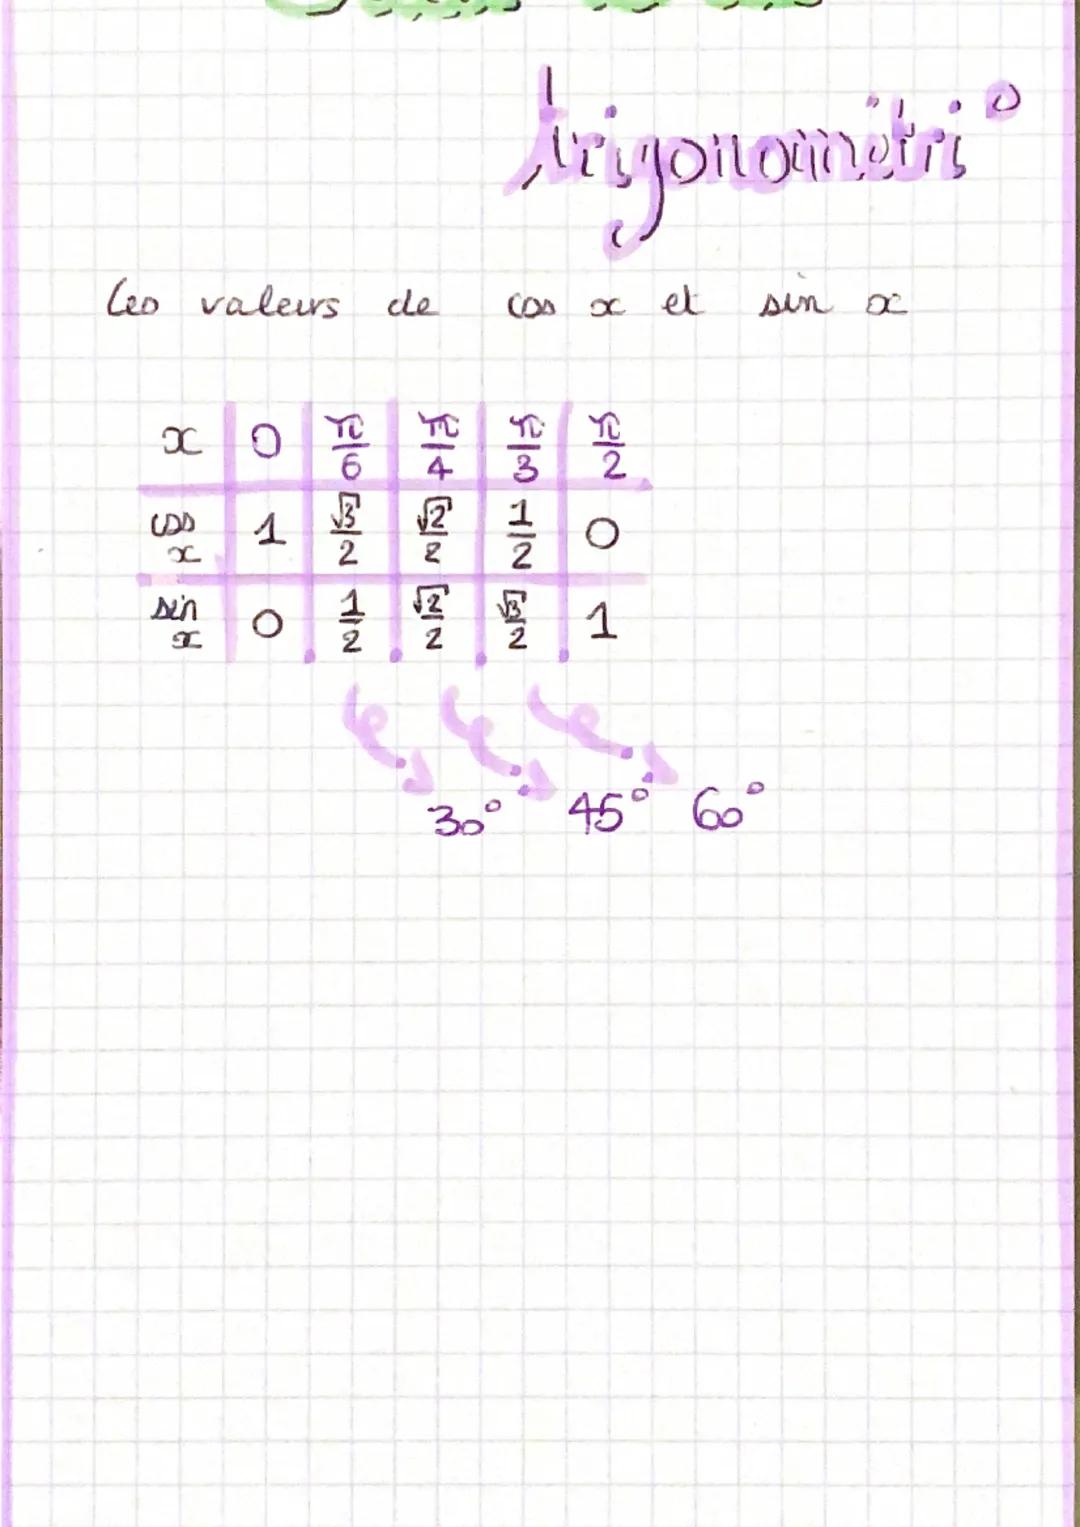 trigonométrie
Les valeurs de cos x et sin x
x 0 π/6 π/4 π/3 π/2
cos x 1 √3/2 √2/2 1/2 0
sin x 0 1/2 √2/2 √3/2 1
30° 45° 60°